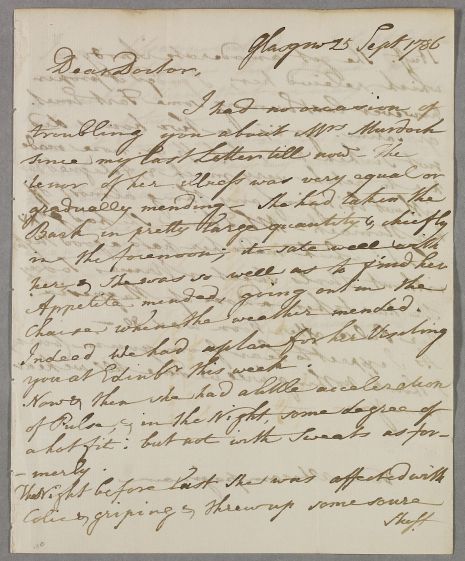 Glasgow 25 Sept 1786
Dear Doctor,
I had no occasion of
troubling you about Mrs. Murdoch
since my last Letter till now - The
tenor of her illness was very equal or
gradually mending - She had taken the
Bark in pretty large quantity, chiefly
in the forenoon; it sate well with
her, & She was so well as to find her
Appetite mended, going out in the
Chaise when the weather mended.
Indeed we had a plan for her Visiting
you at Edinbr this week.
Now & then she had a little acceleration
of Pulse, & in the Night some degree of
a hot fit: but not with Sweats as for-
-merly.
The Night before last She was affected with
Colic & griping & threw up some soure
Stuff